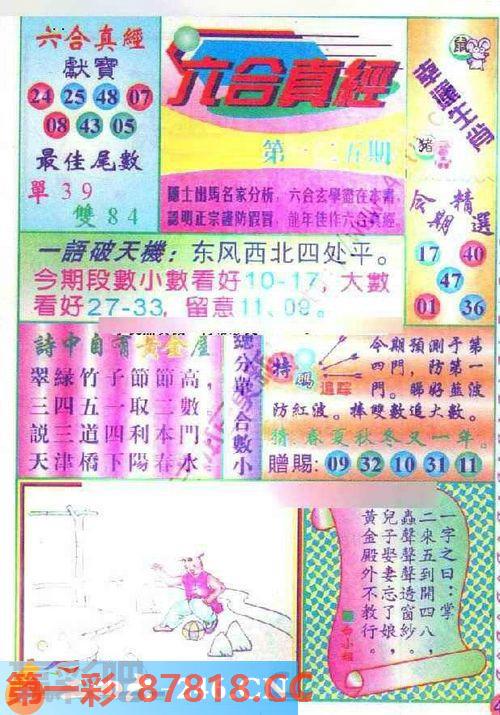 六合真經
獻寶
24 25 48 07
08 43 05
最佳尾數
單39
雙84
六合真經
第一二五期
隱士出馬名家分析，六合玄學盡在本書，
認明正宗謹防假冒，龍年佳作六合真經。
鼠
幸運生肖
豬
今期精選
17 40
47
01 36
一語破天機：东风西北四处平。
今期段數小數看好10-17，大數
看好27-33，留意11、09。
詩中自有黃金屋
翠綠竹子節節高，
三四五一取二數。
説三道四利本門
天津橋下陽春水
總分單合數小
特碼
追踪
今期預測乎第
四門，防第一
門。睇好藍波
防紅波。棒雙數追大數。
猜：春夏秋冬又一年。
贈賜：09 32 10 31 11
一字之曰：掌
二來五到開四八，
蟲聲聲聲透窗紗。
兒子娶妻忘了娘，
黃金殿外不救行。
第一彩 87818.CC